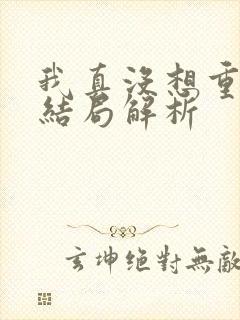 我真没想重
結局解析
玄坤絕對無敵